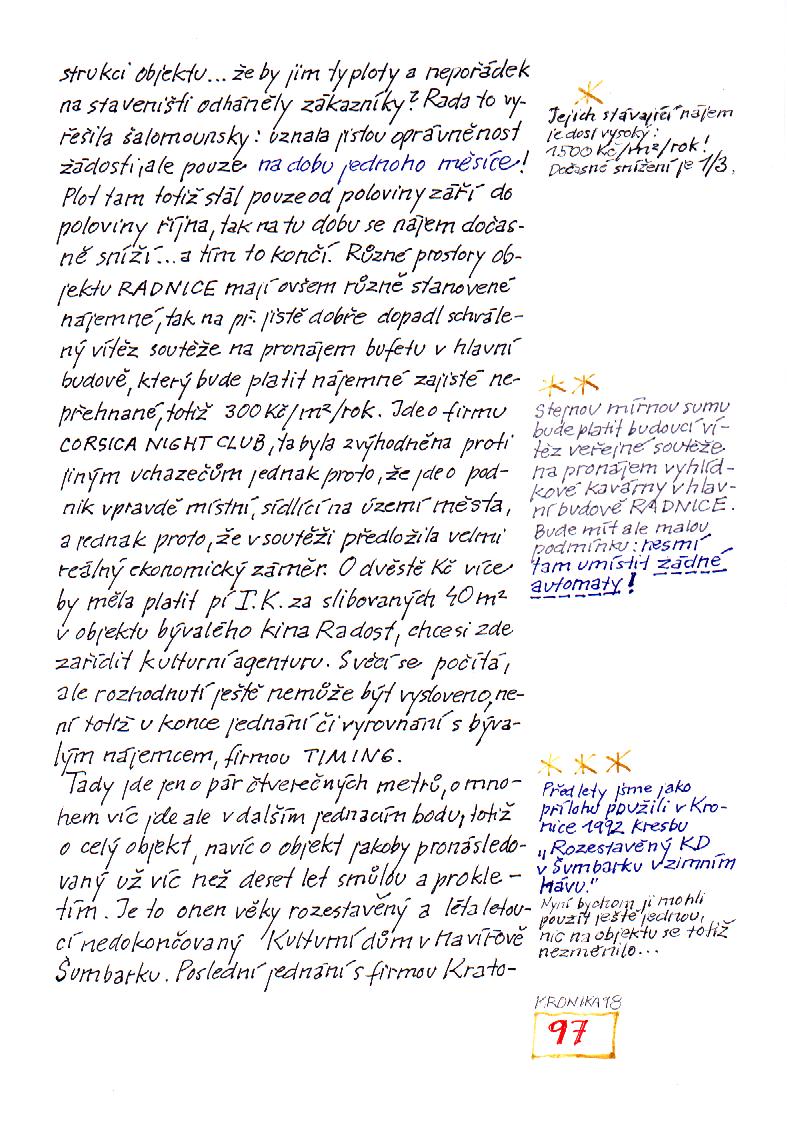 strukci objektu... že by jim ty ploty a nepořádek
na staveništi odháněly zákazníky? Rada to vy-
řešila šalomounsky: uznala jistou oprávněnost
žádosti, ale pouze na dobu jednoho měsíce!
Plot tam totiž stál pouze od poloviny září do
poloviny října, tak na tu dobu se nájem dočas-
ně sníží... a tím to končí. Různé prostory ob-
jektu RADNICE mají ovšem různě stanovené
nájemné, tak na př. jistě dobře dopadl schvále-
ný vítěz soutěže na pronájem bufetu v hlavní
budově, který bude platit nájemné zajisté ne-
přehnané, totiž 300 Kč/m²/rok. Jde o firmu
CORSICA NIGHT CLUB, ta byla zvýhodněna proti
jiným uchazečům jednak proto, že jde o pod-
nik vpravdě místní, sídlící na území města,
a jednak proto, že v soutěži předložila velmi
reálný ekonomický záměr. O dvěstě Kč více
by měla platit pí I.K. za slibovaných 40 m²
v objektu bývalého kina Radost, chce si zde
zařídit kulturní agenturu. S věcí se počítá,
ale rozhodnutí ještě nemůže být vysloveno, ne-
ní totiž u konce jednání či vyrovnání s býva-
lým nájemcem, firmou TIMING.
Tady jde jen o pár čtverečných metrů, o mno-
hem víc jde ale v dalším jednacím bodu, totiž
o celý objekt, navíc o objekt jakoby pronásledo-
vaný už víc než deset let smůlou a prokle-
tím. Je to onen věky rozestavěný a léta letou-
cí nedokončovaný Kulturní dům v Havířově
Šumbarku. Poslední jednání s firmou Krato-
*
Jejich stávající nájem
je dost vysoký:
1500 Kč/m²/rok!
Dočasné snížení je 1/3.
**
Stejnou mírnou sumu
bude platit budoucí ví-
těz veřejné soutěže
na pronájem vyhlíd-
kové kavárny v hlav-
ní budově RADNICE.
Bude mít ale malou
podmínku: nesmí
tam umístit žádné
automaty!
***
Před lety jsme jako
přílohu použili v Kro-
nice 1992 kresbu
„Rozestavěný KD
v Šumbarku v zimním
hávu."
Nyní bychom ji mohli
použít ještě jednou,
nic na objektu se totiž
nezměnilo...
KRONIKA 98
97